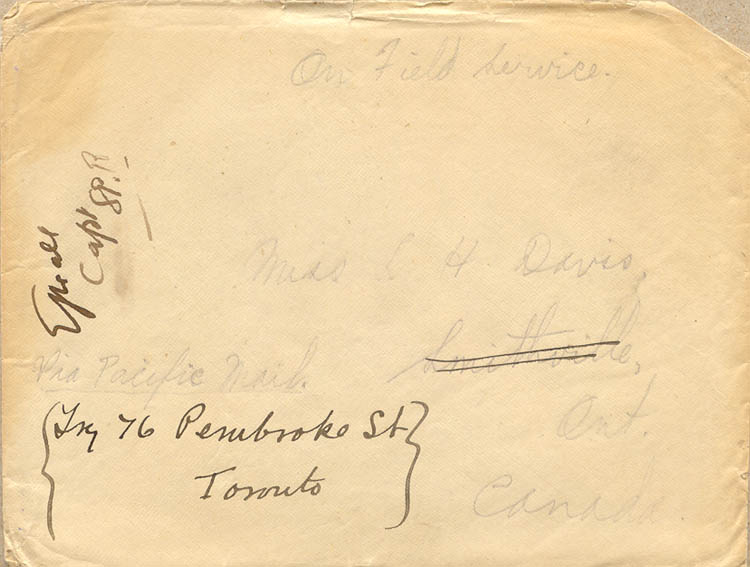 On Field Service.
Capt 8P.R
Miss H. Davis,
Smithville,
Via Pacific Mail.
Ont.
Canada.
{Try 76 Pembroke St}
Toronto